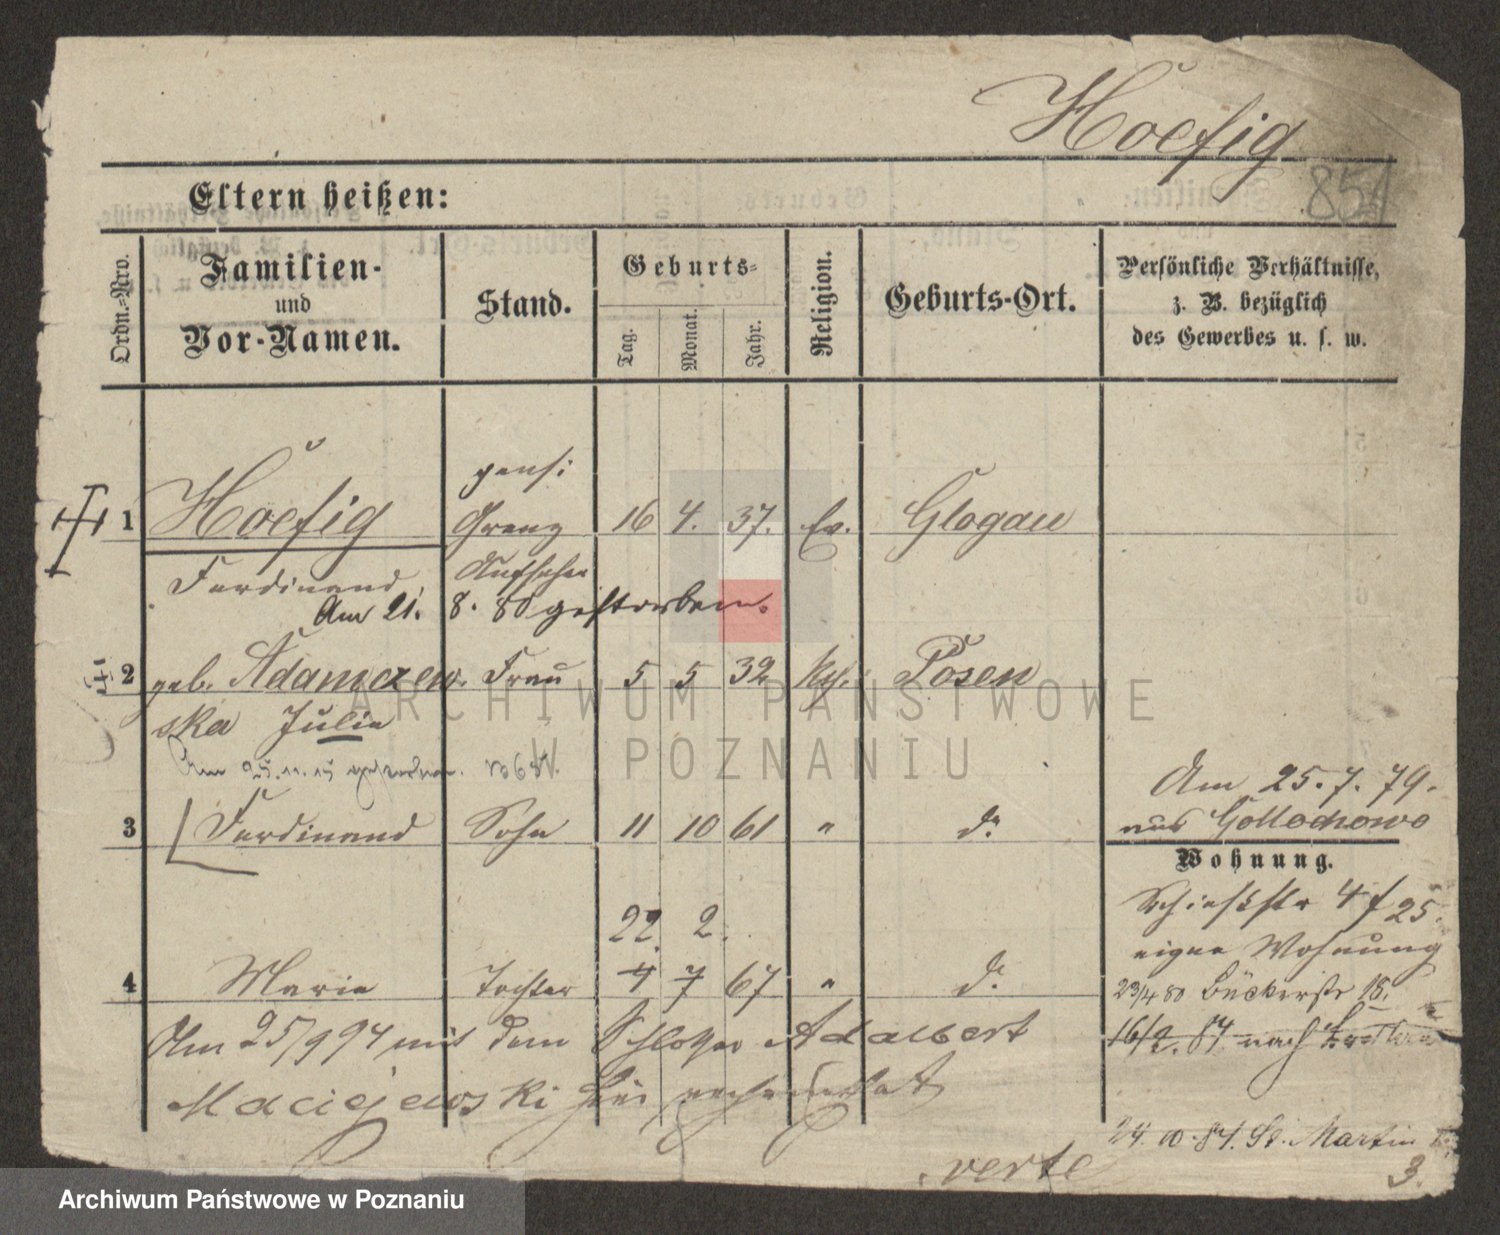 Hoefig
851
Eltern heißen:
Ordn.-Nro.
Familien-
und
Vor-Namen.
Stand.
Geburts-
Tag.
Monat.
Jahr.
Religion.
Geburts-Ort.
Persönliche Verhältnisse,
z. B. bezüglich
des Gewerbes u. s. w.
pens:
1 Hoefig Grenz 16 4. 37. Ev. Glogau
Ferdinand Aufseher
Am 21. 8. 80 gestorben.
2 geb. Adamczew- Frau 5 5 32 Posen
ska Julie
Am 25.11.15 gestorben.
Am 25.7.79.
3 Ferdinand Sohn 11 10 61 " do.
aus Gollochowo
Wohnung.
Schießstr 4 f 25.
22. 2.
eigne Wohnung
4 Marie Tochter 4 7 67 " do.
23/4 80 Bückerstr 18.
Am 25/9 94 mit dem Schlosser Adalbert
16/2. 84 nach
Maciejewski hier verheirathet
24. 10. 84. St. Martin
3.
verte
ARCHIWUM PAŃSTWOWE
W POZNANIU
Archiwum Państwowe w Poznaniu